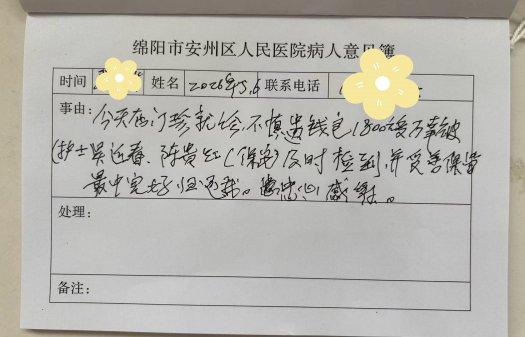 绵阳市安州区人民医院病人意见簿
时间 姓名 2026年5.6 联系电话
事由：今天在门诊就诊不慎遗失钱包1800余元幸被
护士吴近春、陈贵红(保洁)及时捡到，并妥善保管
最中完好归还我。忠心感谢。
处理：
备注：